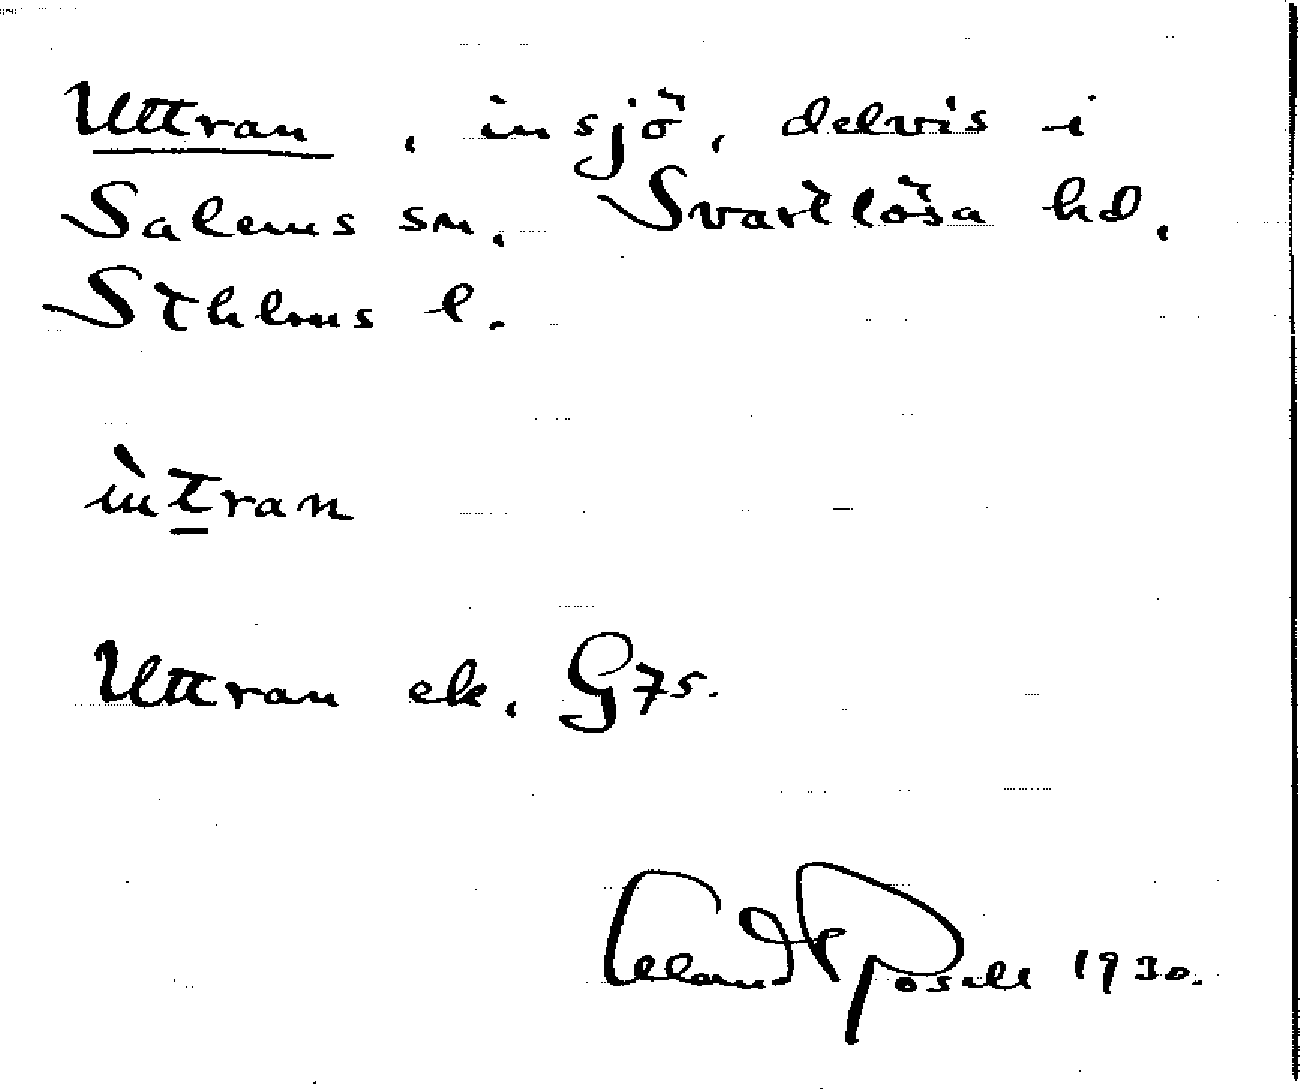 Uttran, insjö, delvis i
Salems sn, Svartlösa hd,
Sthlms l.
ùtran
Uttran ek. G75.
Erland Rosell 1930.